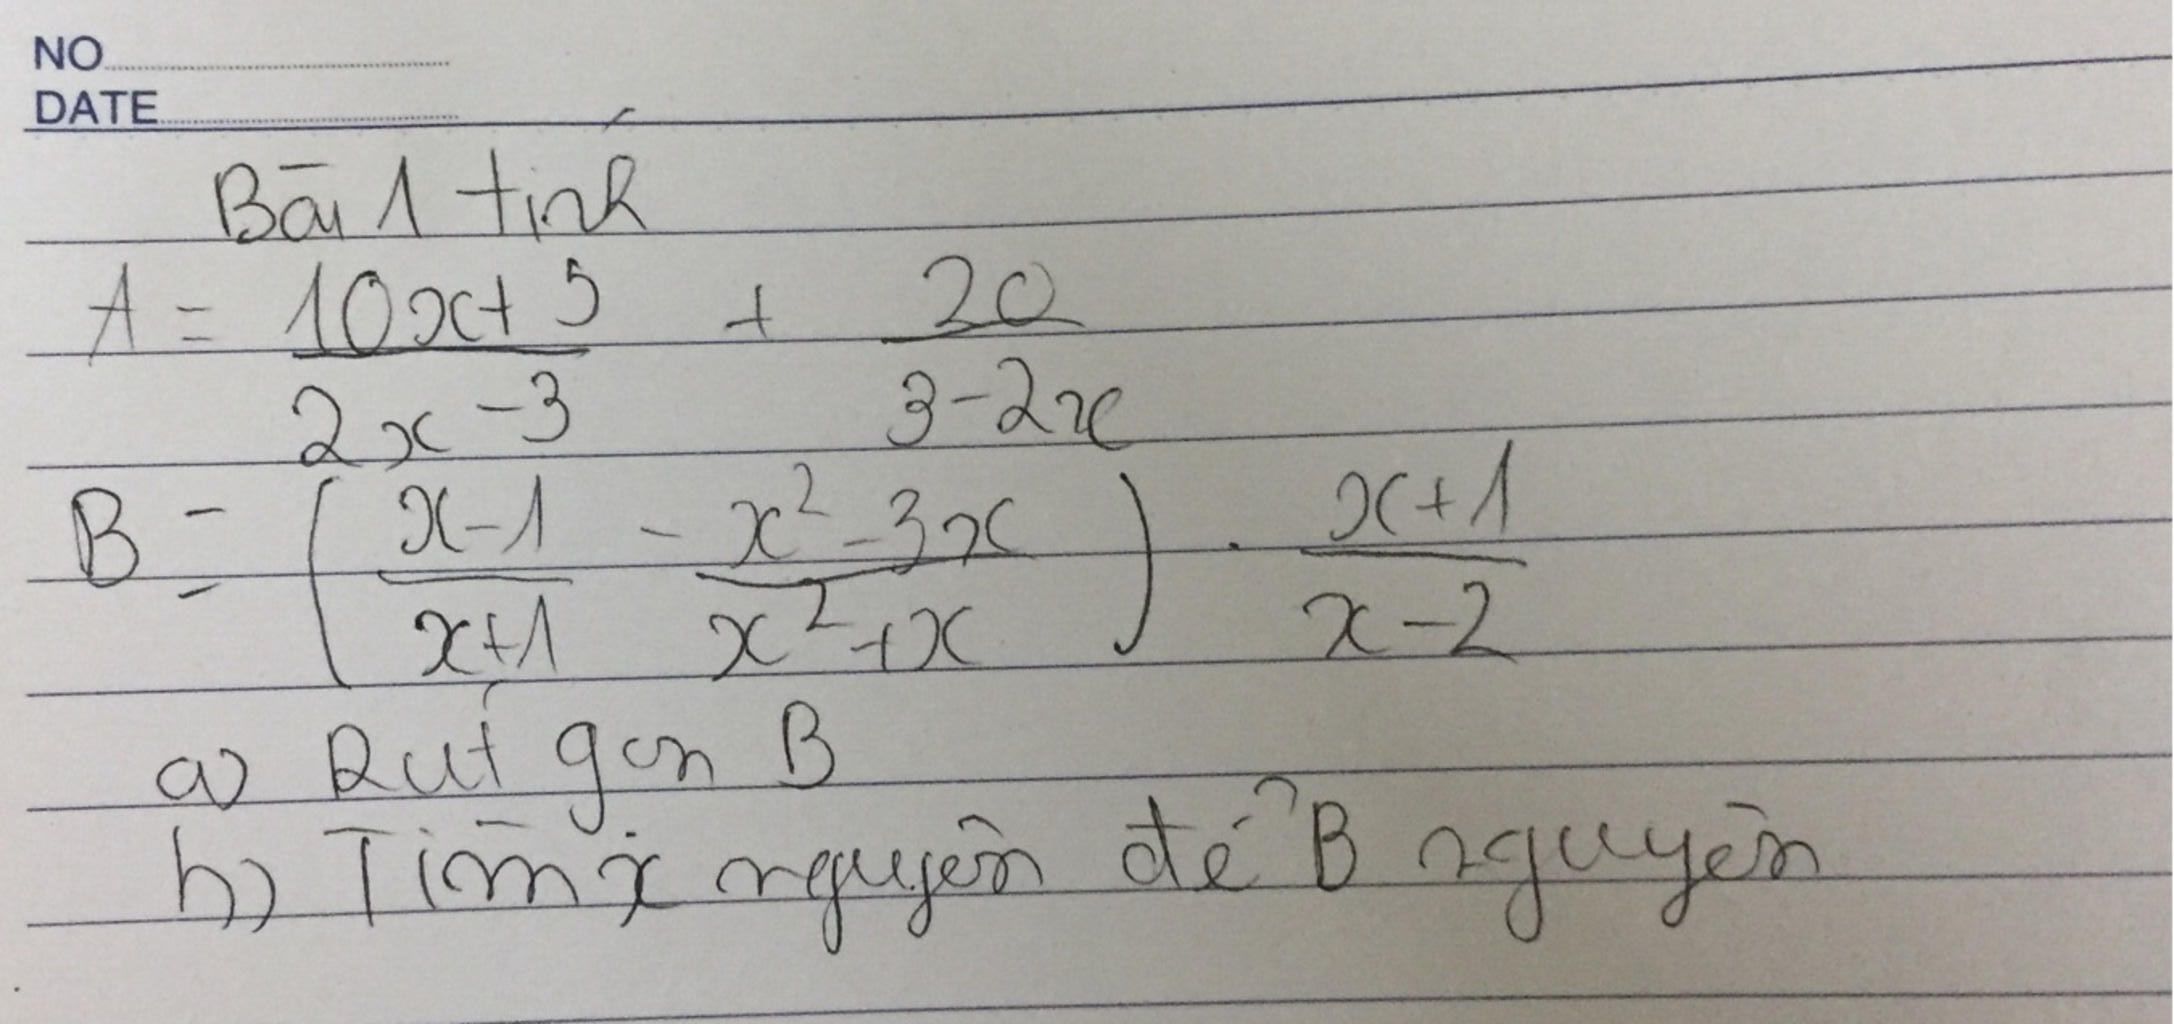 NO
DATE
Bài 1 tính
A = \frac{10x+5}{2x-3} + \frac{20}{3-2x}
B = \left( \frac{x-1}{x+1} - \frac{x^2-3x}{x^2+x} \right) \cdot \frac{x+1}{x-2}
a) Rút gọn B
b) Tìm x nguyên để B nguyên